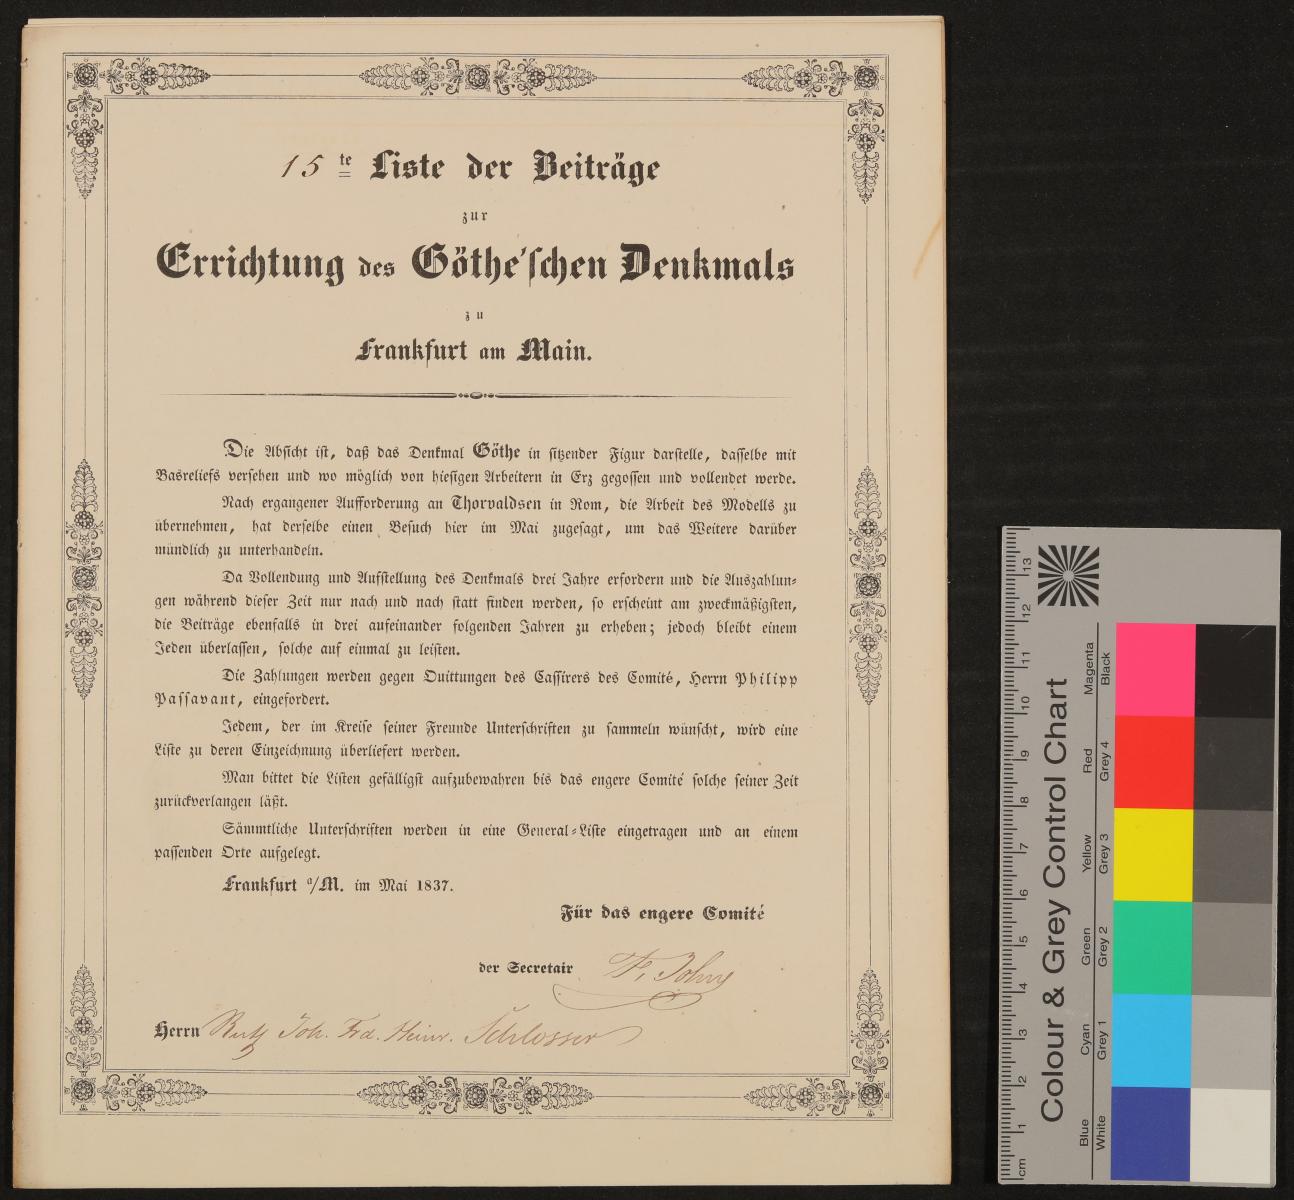 15te Liste der Beiträge
zur
Errichtung des Göthe'schen Denkmals
zu
Frankfurt am Main.
Die Absicht ist, daß das Denkmal Göthe in sitzender Figur darstelle, dasselbe mit
Basreliefs versehen und wo möglich von hiesigen Arbeitern in Erz gegossen und vollendet werde.
Nach ergangener Aufforderung an Thorvaldsen in Rom, die Arbeit des Modells zu
übernehmen, hat derselbe einen Besuch hier im Mai zugesagt, um das Weitere darüber
mündlich zu unterhandeln.
Da Vollendung und Aufstellung des Denkmals drei Jahre erfordern und die Auszahlun-
gen während dieser Zeit nur nach und nach statt finden werden, so erscheint am zweckmäßigsten,
die Beiträge ebenfalls in drei aufeinander folgenden Jahren zu erheben; jedoch bleibt einem
Jeden überlassen, solche auf einmal zu leisten.
Die Zahlungen werden gegen Quittungen des Cassirers des Comité, Herrn Philipp
Passavant, eingefordert.
Jedem, der im Kreise seiner Freunde Unterschriften zu sammeln wünscht, wird eine
Liste zu deren Einzeichnung überliefert werden.
Man bittet die Listen gefälligst aufzubewahren bis das engere Comité solche seiner Zeit
zurückverlangen läßt.
Sämmtliche Unterschriften werden in eine General-Liste eingetragen und an einem
passenden Orte aufgelegt.
Frankfurt a/M. im Mai 1837.
Für das engere Comité
der Secretair F.
Herrn Joh. Frd. Heinr. Schlosser
Colour & Grey Control Chart
Blue Cyan Green Yellow Red Magenta
White Grey 1 Grey 2 Grey 3 Grey 4 Black
cm 1 2 3 4 5 6 7 8 9 10 11 12 13